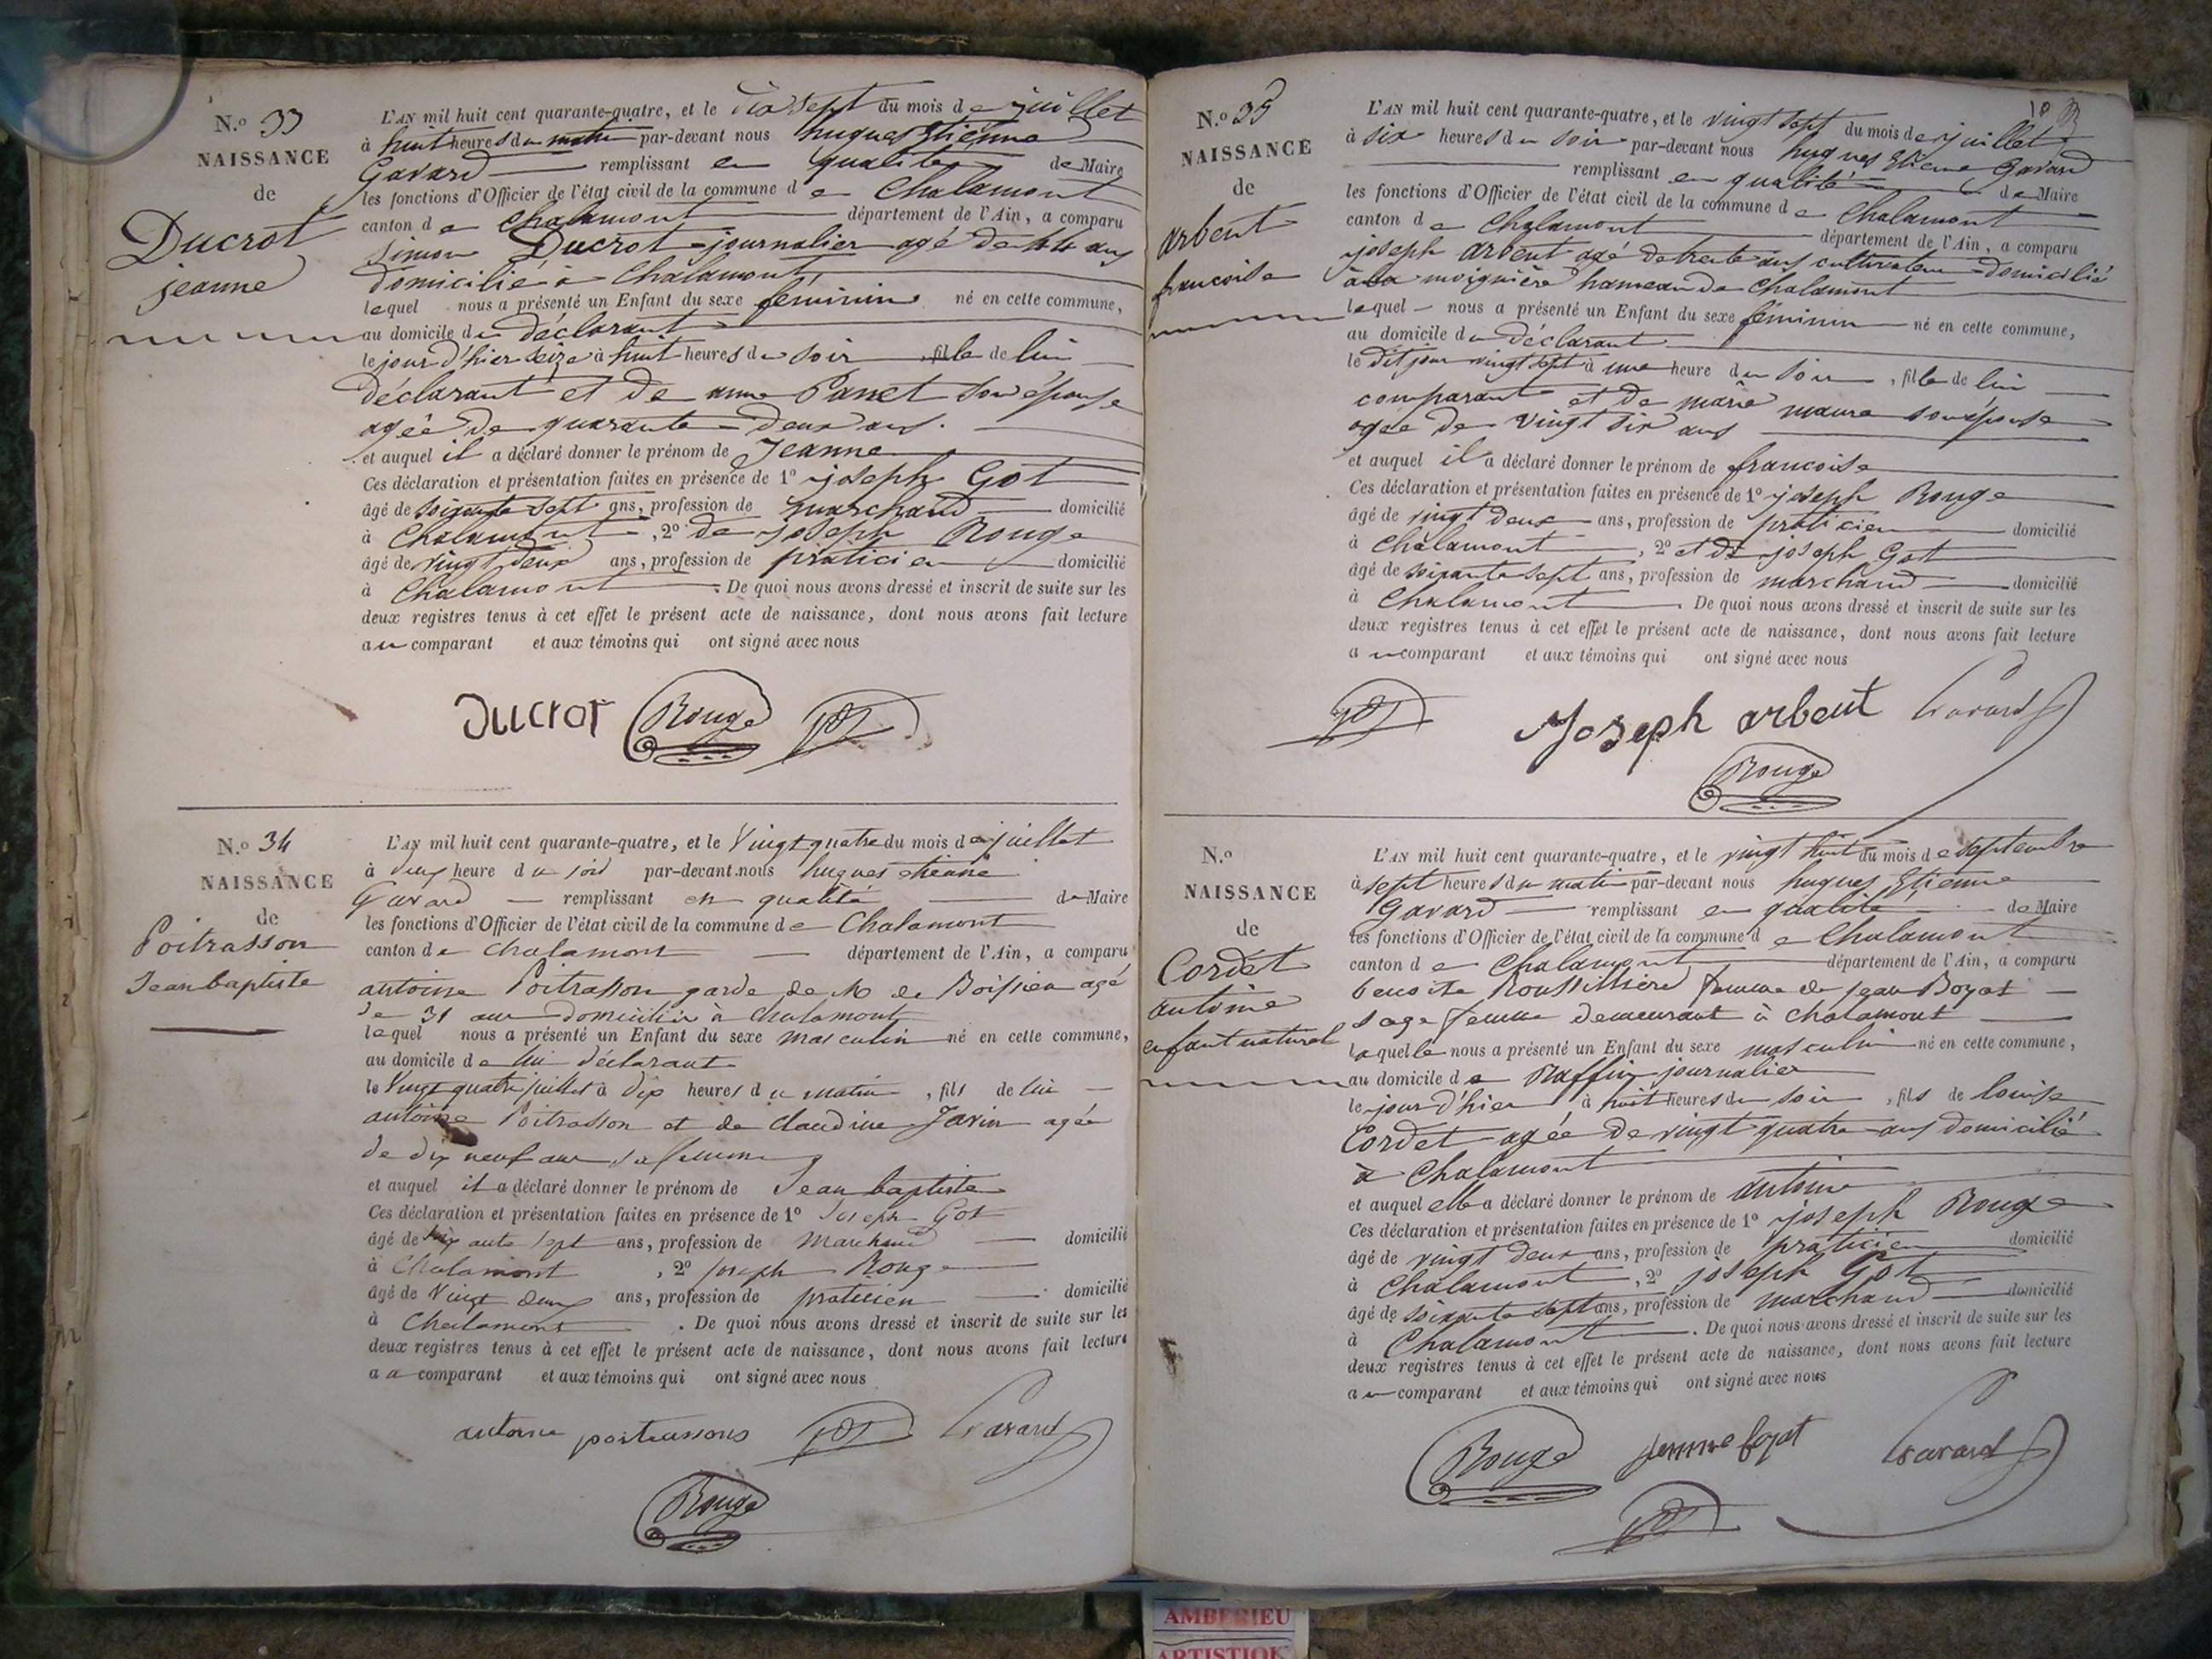 N.º 33
NAISSANCE
de
Ducrot
jeanne
L'AN mil huit cent quarante-quatre, et le dix sept du mois de juillet
à huit heures du matin par-devant nous hugues Etienne
Gavard remplissant en qualité de Maire
les fonctions d'Officier de l'état civil de la commune de Chalamont
canton de Chalamont département de l'Ain, a comparu
Simon Ducrot journalier agé de ans
domicilié à Chalamont
lequel nous a présenté un Enfant du sexe féminin né en cette commune,
au domicile du déclarant
le jour d'hier seize à huit heures du soir, fille de lui
déclarant et de anne Panet son épouse
agée de quarante deux ans.
et auquel il a déclaré donner le prénom de Jeanne
Ces déclaration et présentation faites en présence de 1º joseph Got
âgé de soixante sept ans, profession de marchand domicilié
à Chalamont, 2º de joseph Rouge
âgé de vingt deux ans, profession de praticien domicilié
à Chalamont. De quoi nous avons dressé et inscrit de suite sur les
deux registres tenus à cet effet le présent acte de naissance, dont nous avons fait lecture
au comparant et aux témoins qui ont signé avec nous
Ducrot Rouge Got
N.º 34
NAISSANCE
de
Poitrasson
Jean baptiste
L'AN mil huit cent quarante-quatre, et le Vingt quatre du mois de juillet
à deux heure du soir par-devant nous hugues etienne
Gavard remplissant en qualité de Maire
les fonctions d'Officier de l'état civil de la commune de Chalamont
canton de Chalamont département de l'Ain, a comparu
antoine Poitrasson garde de M de Boissieu agé
de 31 ans domicilié à Chalamont
lequel nous a présenté un Enfant du sexe masculin né en cette commune,
au domicile de lui déclarant
le Vingt quatre juillet à dix heures du matin, fils de lui
antoine Poitrasson et de claudine Javin agée
de dix neuf ans sa femme
et auquel il a déclaré donner le prénom de Jean baptiste
Ces déclaration et présentation faites en présence de 1º Joseph Got
âgé de soixante sept ans, profession de Marchand domicilié
à Chalamont, 2º joseph Rouge
âgé de Vingt deux ans, profession de praticien domicilié
à Chalamont. De quoi nous avons dressé et inscrit de suite sur les
deux registres tenus à cet effet le présent acte de naissance, dont nous avons fait lecture
au comparant et aux témoins qui ont signé avec nous
antoine poitrassons Got Gavard
Rouge
N.º 35
NAISSANCE
de
arbent
francoise
L'AN mil huit cent quarante-quatre, et le vingt sept du mois de juillet
à six heures du soir par-devant nous hugues Etienne Gavard
remplissant en qualité de Maire
les fonctions d'Officier de l'état civil de la commune de Chalamont
canton de Chalamont département de l'Ain, a comparu
joseph arbent agé de trente ans cultivateur domicilié
à la moignière hameau de Chalamont
lequel nous a présenté un Enfant du sexe féminin né en cette commune,
au domicile du déclarant
le dit jour vingt sept à une heure du soir, fille de lui
comparant et de marie maure son épouse
agée de vingt six ans
et auquel il a déclaré donner le prénom de francoise
Ces déclaration et présentation faites en présence de 1º joseph Rouge
âgé de vingt deux ans, profession de praticien domicilié
à Chalamont, 2º et de joseph Got
âgé de soixante sept ans, profession de marchand domicilié
à Chalamont. De quoi nous avons dressé et inscrit de suite sur les
deux registres tenus à cet effet le présent acte de naissance, dont nous avons fait lecture
au comparant et aux témoins qui ont signé avec nous
Got Joseph arbent Gavard
Rouge
N.º
NAISSANCE
de
Cordet
antoine
enfant naturel
L'AN mil huit cent quarante-quatre, et le vingt huit du mois de septembre
à sept heures du matin par-devant nous hugues Etienne
Gavard remplissant en qualité de Maire
les fonctions d'Officier de l'état civil de la commune de Chalamont
canton de Chalamont département de l'Ain, a comparu
benoite Roussillière femme de jean Boyat
sage femme demeurant à Chalamont
laquelle nous a présenté un Enfant du sexe masculin né en cette commune,
au domicile de Raffin journalier
le jour d'hier à huit heures du soir, fils de louise
Cordet agée de vingt quatre ans domicilié
à Chalamont
et auquel elle a déclaré donner le prénom de antoine
Ces déclaration et présentation faites en présence de 1º joseph Rouge
âgé de vingt deux ans, profession de praticien domicilié
à Chalamont, 2º joseph Got
âgé de soixante sept ans, profession de marchand domicilié
à Chalamont. De quoi nous avons dressé et inscrit de suite sur les
deux registres tenus à cet effet le présent acte de naissance, dont nous avons fait lecture
au comparant et aux témoins qui ont signé avec nous
Rouge femme boyat Gavard
Got
AMBERIEU